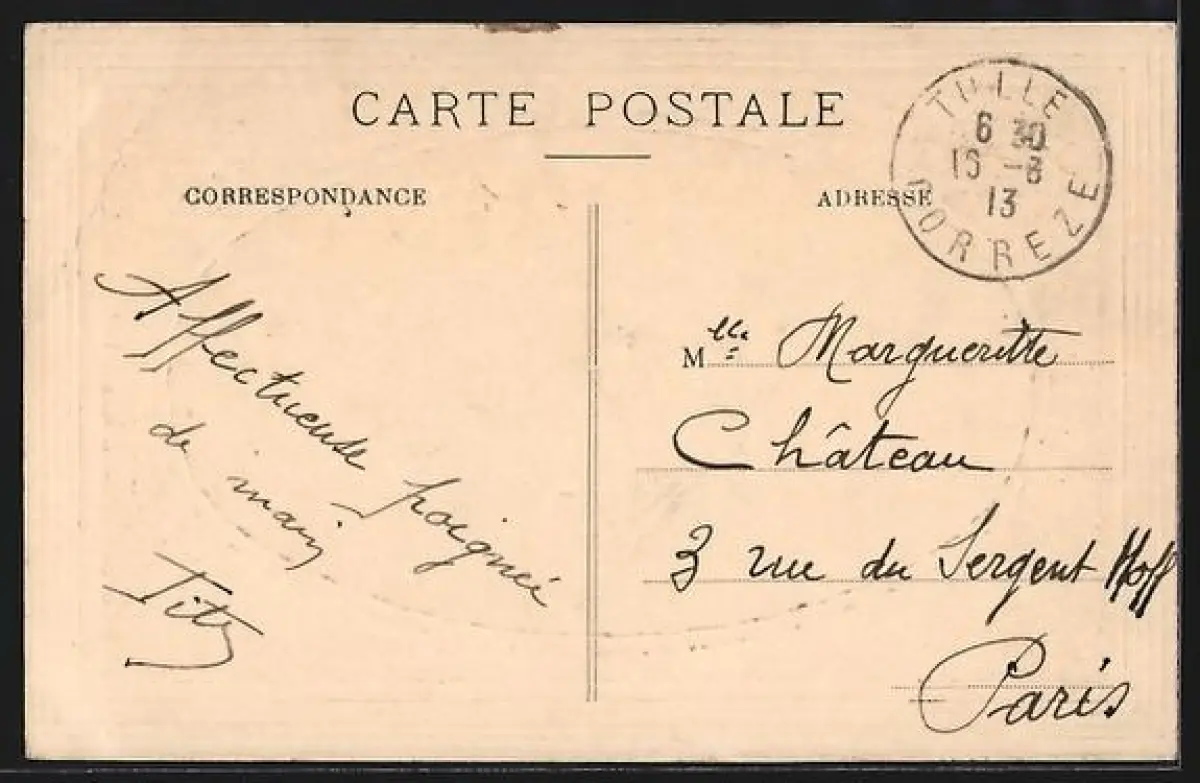 CARTE POSTALE
CORRESPONDANCE
ADRESSE
TULLE
6 30
16 -8
13
CORREZE
Affectueuse poignée
de main
Tito
Mlle Margueritte
Château
3 rue du Sergent Hoff
Paris